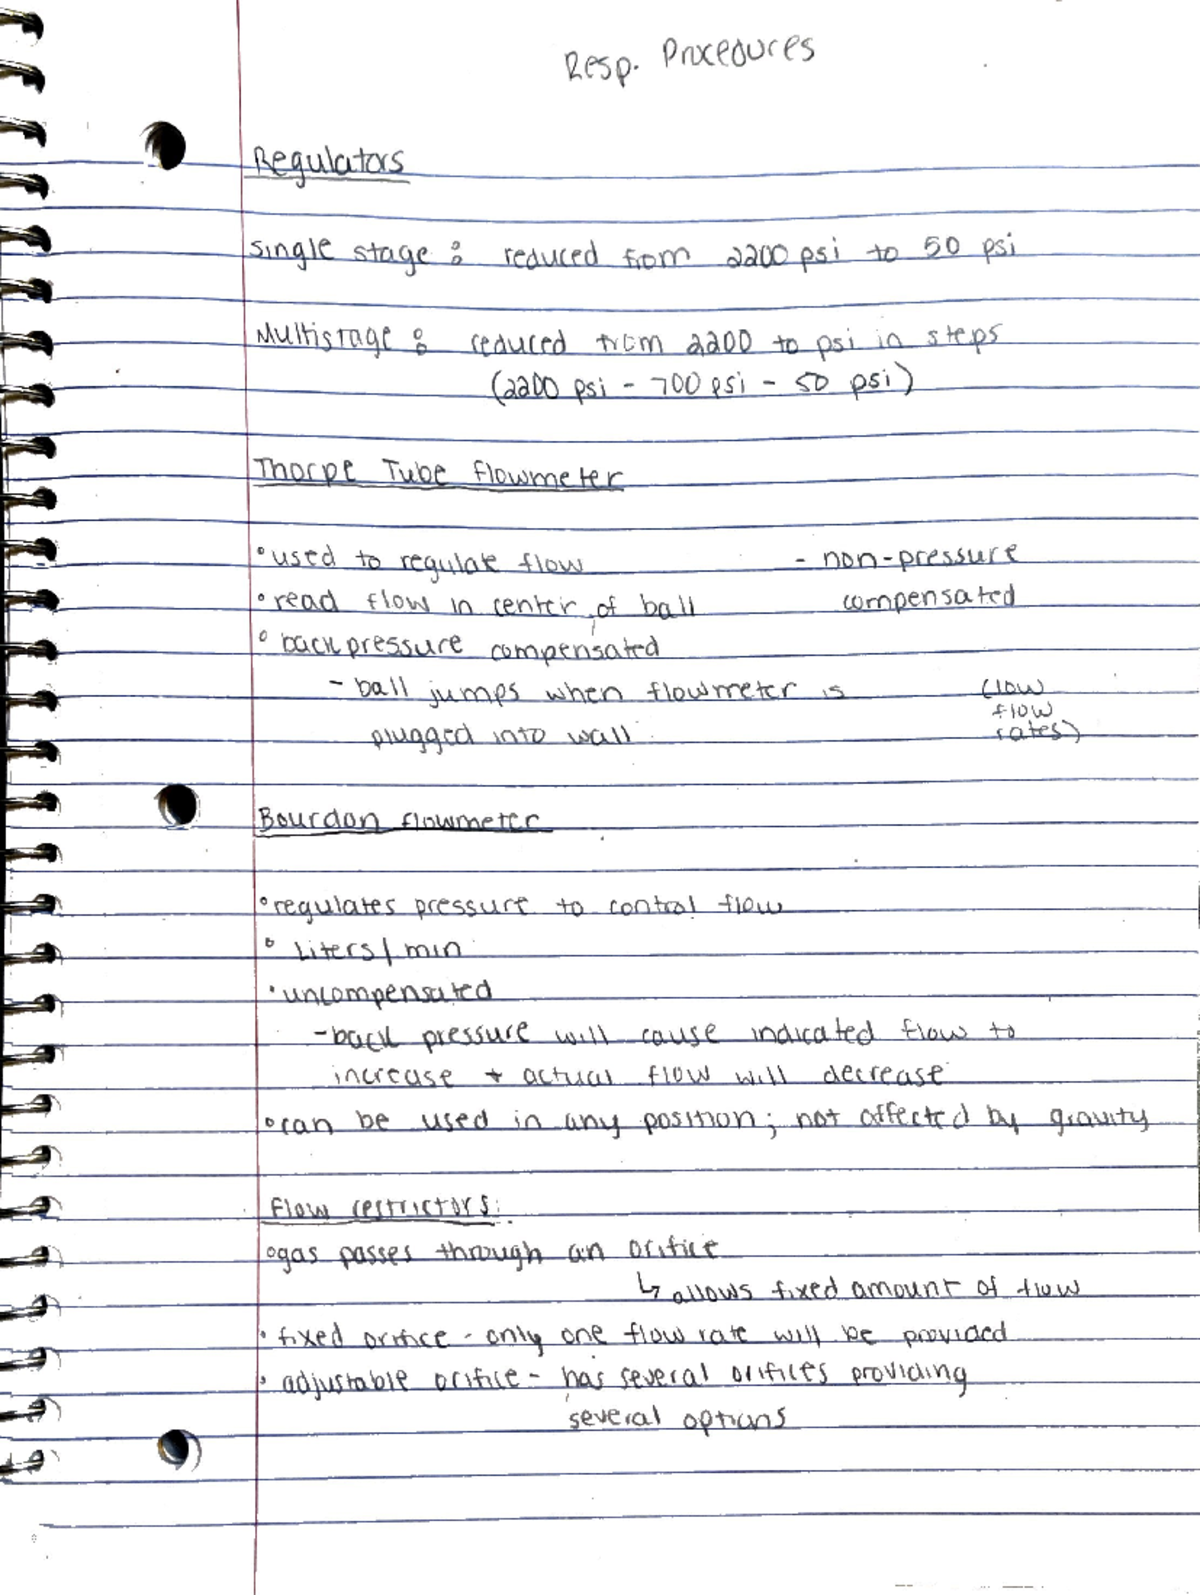 Resp. Procedures
Regulators
Single stage: reduced from 2200 psi to 50 psi
Multistage: reduced from 2200 to psi in steps
(2200 psi - 700 psi - 50 psi)
Thorpe Tube flowmeter
• used to regulate flow - non-pressure
• read flow in center of ball compensated
• back pressure compensated
- ball jumps when flowmeter is (low
flow
plugged into wall rates)
Bourdon flowmeter
• regulates pressure to control flow
• Liters/min
• uncompensated
- back pressure will cause indicated flow to
increase + actual flow will decrease
• can be used in any position; not affected by gravity
Flow restrictors:
• gas passes through an orifice
↳ allows fixed amount of flow
• fixed orifice - only one flow rate will be provided
• adjustable orifice - has several orifices providing
several options